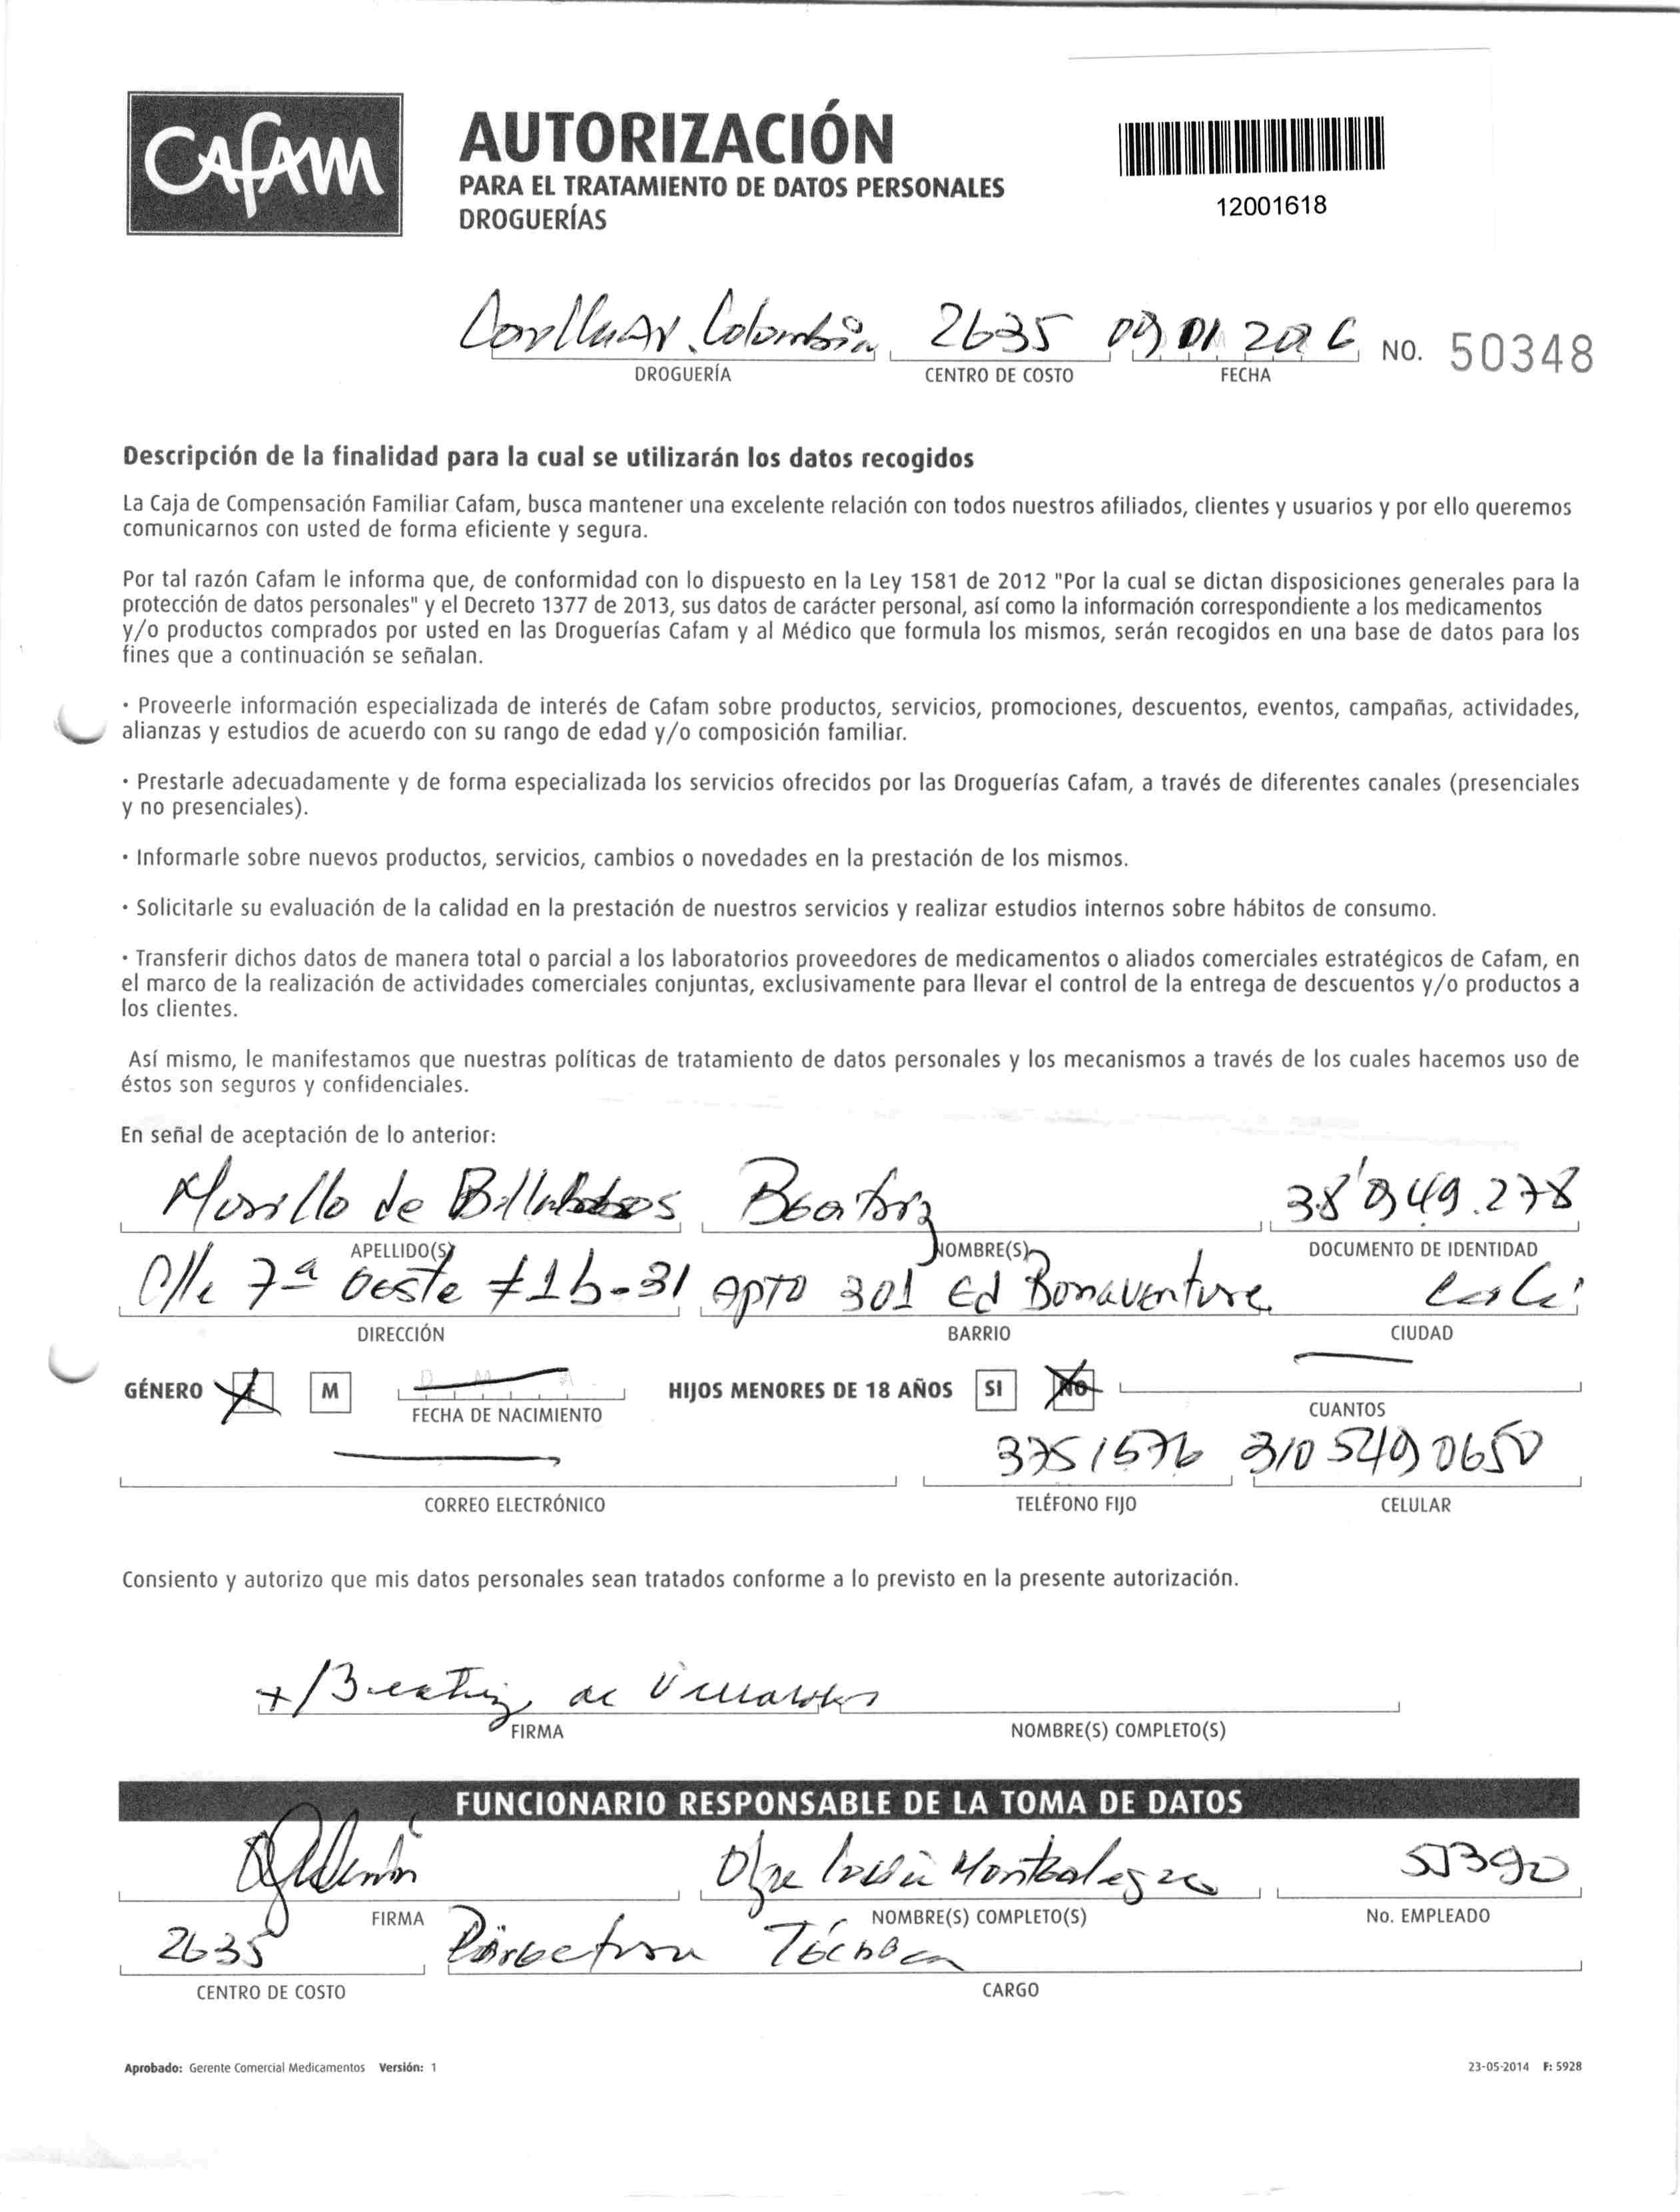 CAFAM
AUTORIZACIÓN
PARA EL TRATAMIENTO DE DATOS PERSONALES
DROGUERÍAS
12001618
Colombia 2635 09 01 NO. 50348
DROGUERÍA CENTRO DE COSTO FECHA
Descripción de la finalidad para la cual se utilizarán los datos recogidos
La Caja de Compensación Familiar Cafam, busca mantener una excelente relación con todos nuestros afiliados, clientes y usuarios y por ello queremos
comunicarnos con usted de forma eficiente y segura.
Por tal razón Cafam le informa que, de conformidad con lo dispuesto en la Ley 1581 de 2012 "Por la cual se dictan disposiciones generales para la
protección de datos personales" y el Decreto 1377 de 2013, sus datos de carácter personal, así como la información correspondiente a los medicamentos
y/o productos comprados por usted en las Droguerías Cafam y al Médico que formula los mismos, serán recogidos en una base de datos para los
fines que a continuación se señalan.
· Proveerle información especializada de interés de Cafam sobre productos, servicios, promociones, descuentos, eventos, campañas, actividades,
alianzas y estudios de acuerdo con su rango de edad y/o composición familiar.
· Prestarle adecuadamente y de forma especializada los servicios ofrecidos por las Droguerías Cafam, a través de diferentes canales (presenciales
y no presenciales).
· Informarle sobre nuevos productos, servicios, cambios o novedades en la prestación de los mismos.
· Solicitarle su evaluación de la calidad en la prestación de nuestros servicios y realizar estudios internos sobre hábitos de consumo.
· Transferir dichos datos de manera total o parcial a los laboratorios proveedores de medicamentos o aliados comerciales estratégicos de Cafam, en
el marco de la realización de actividades comerciales conjuntas, exclusivamente para llevar el control de la entrega de descuentos y/o productos a
los clientes.
Así mismo, le manifestamos que nuestras políticas de tratamiento de datos personales y los mecanismos a través de los cuales hacemos uso de
éstos son seguros y confidenciales.
En señal de aceptación de lo anterior:
de Beatriz 38'949.278
APELLIDO(S) NOMBRE(S) DOCUMENTO DE IDENTIDAD
Clle 7ª Oeste #1b-31 apto 301 Ed Bonaventure Cali
DIRECCIÓN BARRIO CIUDAD
GÉNERO F M D M A HIJOS MENORES DE 18 AÑOS SI NO
FECHA DE NACIMIENTO CUANTOS
3751576 310 5490650
CORREO ELECTRÓNICO TELÉFONO FIJO CELULAR
Consiento y autorizo que mis datos personales sean tratados conforme a lo previsto en la presente autorización.
Beatriz de Villalobos
FIRMA NOMBRE(S) COMPLETO(S)
FUNCIONARIO RESPONSABLE DE LA TOMA DE DATOS
Montealegre 55390
FIRMA NOMBRE(S) COMPLETO(S) No. EMPLEADO
2635 Directora Técnica
CENTRO DE COSTO CARGO
Aprobado: Gerente Comercial Medicamentos Versión: 1 23-05-2014 F: 5928